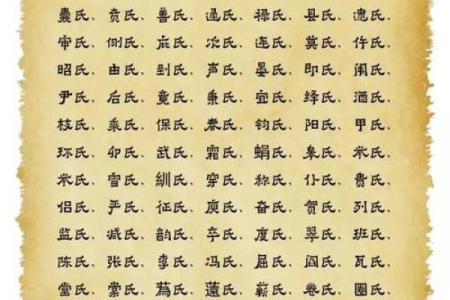 囊氏、贲氏、善氏、逯氏、禄氏、县氏、逮氏、
审氏、侧氏、庇氏、次氏、连氏、莫氏、仵氏、
昭氏、由氏、到氏、声氏、晏氏、即氏、闱氏、
尹氏、后氏、竟氏、秉氏、宜氏、绛氏、酒氏、
枝氏、乘氏、保氏、眷氏、钧氏、阳氏、甲氏、
环氏、卯氏、武氏、霜氏、蜎氏、枭氏、米氏、
米氏、雪氏、紃氏、穿氏、称氏、仆氏、贵氏、
侣氏、严氏、征氏、庾氏、奋氏、贺氏、列氏、
监氏、减氏、韵氏、卒氏、度氏、翠氏、班氏、
陈氏、张氏、季氏、冯氏、屈氏、阎氏、瓦氏、
堂氏、棠氏、茑氏、莲氏、蕲氏、卷氏、圈氏、